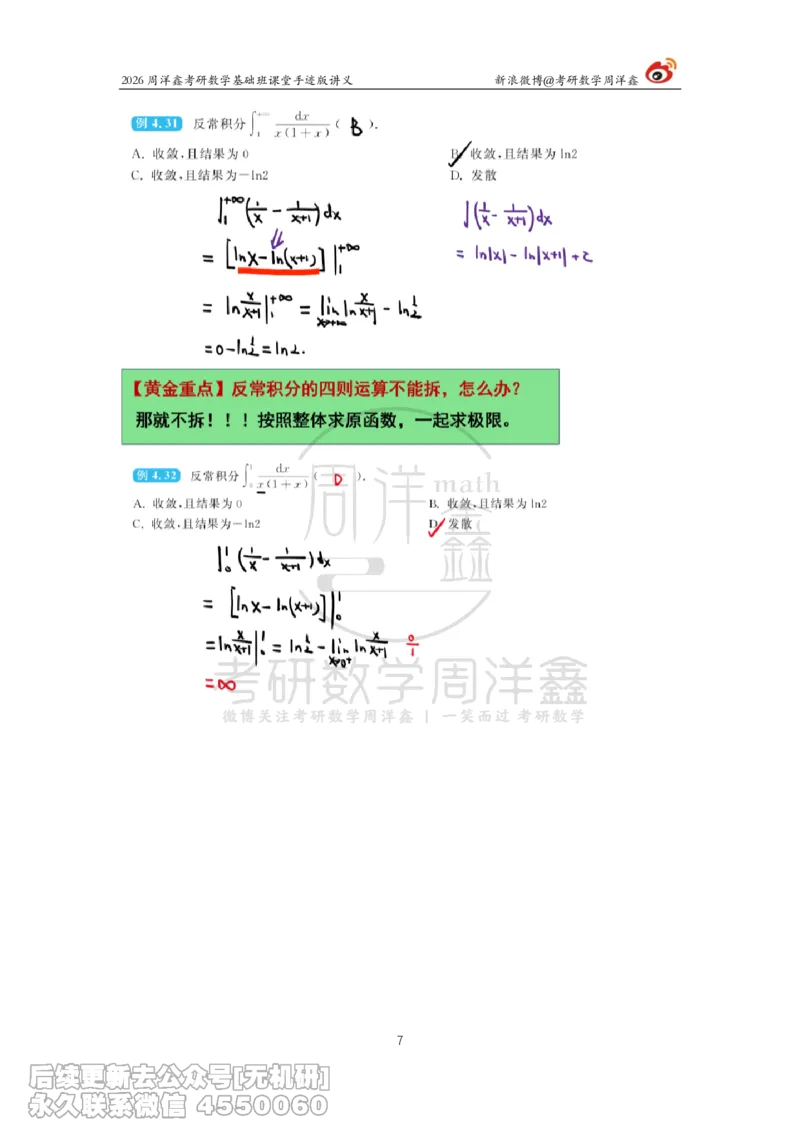 2026 周洋鑫考研数学基础班课堂手迹版讲义 新浪微博@考研数学周洋鑫
例 4.31 反常积分∫₁^{+∞} dx/(x(1+x)) ( B ).
A. 收敛,且结果为 0 B. 收敛,且结果为 ln2
C. 收敛,且结果为-ln2 D. 发散
∫₁^{+∞} (1/x - 1/(x+1)) dx ∫(1/x - 1/(x+1)) dx
= [lnx - ln(x+1)]|₁^{+∞} = ln|x| - ln|x+1| + C
= ln x/(x+1) |₁^{+∞} = lim_{x→+∞} ln x/(x+1) - ln 1/2
= 0 - ln 1/2 = ln2.
【黄金重点】反常积分的四则运算不能拆，怎么办？
那就不拆！！！按照整体求原函数，一起求极限。
例 4.32 反常积分∫₀¹ dx/(x(1+x)) ( D ).
A. 收敛,且结果为 0 B. 收敛,且结果为 ln2
C. 收敛,且结果为-ln2 D. 发散
∫₀¹ (1/x - 1/(x+1)) dx
= [lnx - ln(x+1)]|₀¹
= ln x/(x+1) |₀¹ = ln 1/2 - lim_{x→0+} ln x/(x+1) 0/1
= ∞
周洋鑫 math
考研数学周洋鑫
微博关注考研数学周洋鑫 | 一笑而过 考研数学
7
后续更新去公众号[无机研]
永久联系微信 4550060